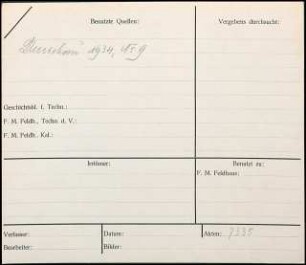 Benutzte Quellen:
Vergebens durchsucht:
1934, Nr. 9
Geschichtsbl. f. Techn.:
F. M. Feldh., Techn. d. V.:
F. M. Feldh., Kal.:
Irrtümer:
Benutzt zu:
F. M. Feldhaus:
Verfasser:
Datum:
Akten: 7335
Bearbeiter:
Bilder: